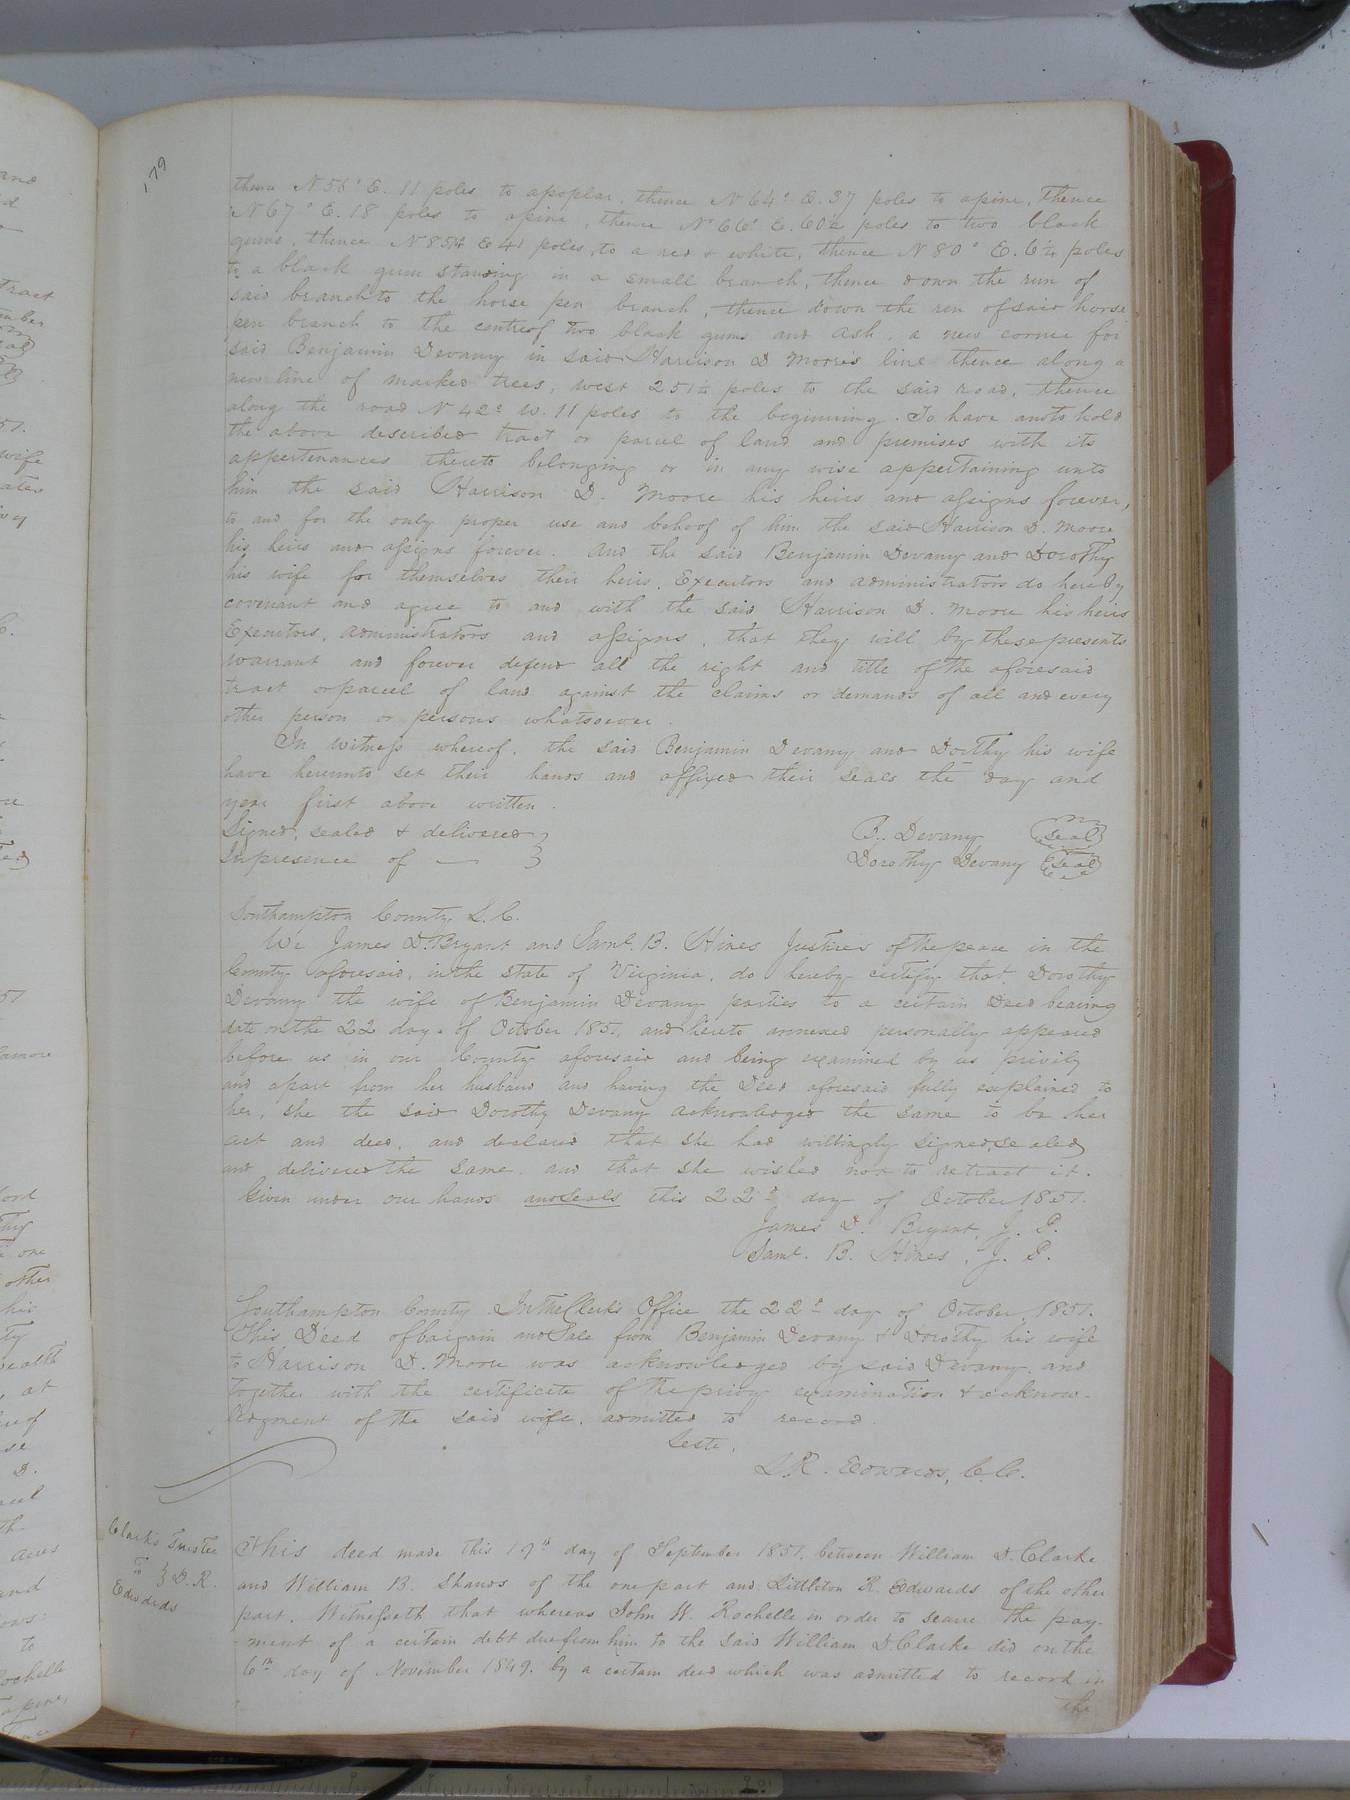 179
thence N 56° E. 11 poles to a poplar, thence N 64° E. 37 poles to a pine, thence
N 67° E. 18 poles to a pine, thence N 66° E. 60½ poles to two black
gums, thence N 85¼ E 41 poles, to a red & white, thence N 80° E. 6¼ poles
to a black gum standing in a small branch, thence down the run of
said branch to the horse pen branch, thence down the run of said horse
pen branch to the centre of two black gums and ash, a new corner for
said Benjamin Devany in said Harrison D Moore's line thence along a
new line of marked trees, west 251¼ poles to the said road, thence
along the road N 42° W. 11 poles to the beginning. To have and to hold
the above described tract or parcel of land and premises with its
appertenances thereto belonging or in any wise appertaining unto
him the said Harrison D. Moore his heirs and assigns forever,
to and for the only proper use and behoof of him the said Harrison D. Moore
his heirs and assigns forever. And the said Benjamin Devany and Dorothy
his wife for themselves their heirs, Executors and administrators do hereby
covenant and agree to and with the said Harrison D. Moore his heirs
Executors, administrators and assigns, that they will by these presents
warrant and forever defend all the right and title of the aforesaid
tract or parcel of land against the claims or demands of all and every
other person or persons whatsoever.
In witness whereof, the said Benjamin Devany and Dorthy his wife
have hereunto set their hands and affixed their seals the day and
year first above written.
Signed, sealed & delivered } B. Devany (seal)
In presence of — } Dorothy Devany (seal)
Southampton County S. C.
We James D. Bryant and Saml. B. Hines Justices of the peace in the
County aforesaid, in the state of Virginia, do hereby certify that Dorothy
Devany the wife of Benjamin Devany parties to a certain Deed bearing
date on the 22 day of October 1851, and hereto annexed personally appeared
before us in our County aforesaid and being examined by us privily
and apart from her husband and having the Deed aforesaid fully explained to
her, she the said Dorothy Devany acknowledged the same to be her
act and deed, and declared that she had willingly signed, sealed
and delivered the same and that she wished not to retract it.
Given under our hands and seals this 22d day of October 1851.
James D. Bryant, J. P.
Saml. B. Hines, J. P.
Southampton County In the Clerk's Office the 22d day of October, 1851.
This Deed of bargain and Sale from Benjamin Devany & Dorothy his wife
to Harrison D. Moore was acknowledged by said Devany and
together with the certificate of the privy examination & acknow-
ledgment of the said wife, admitted to record.
Teste,
L. R. Edwards, C. C.
Clark's Trustee
To } D. R.
Edwards
This deed made this 19th day of September 1851, between William D. Clarke
and William B. Shands of the one part and Littleton R. Edwards of the other
part. Witnesseth that whereas John W. Rochelle in order to secure the pay-
ment of a certain debt due from him to the said William D Clarke did on the
6th day of November 1849, by a certain deed which was admitted to record in
the